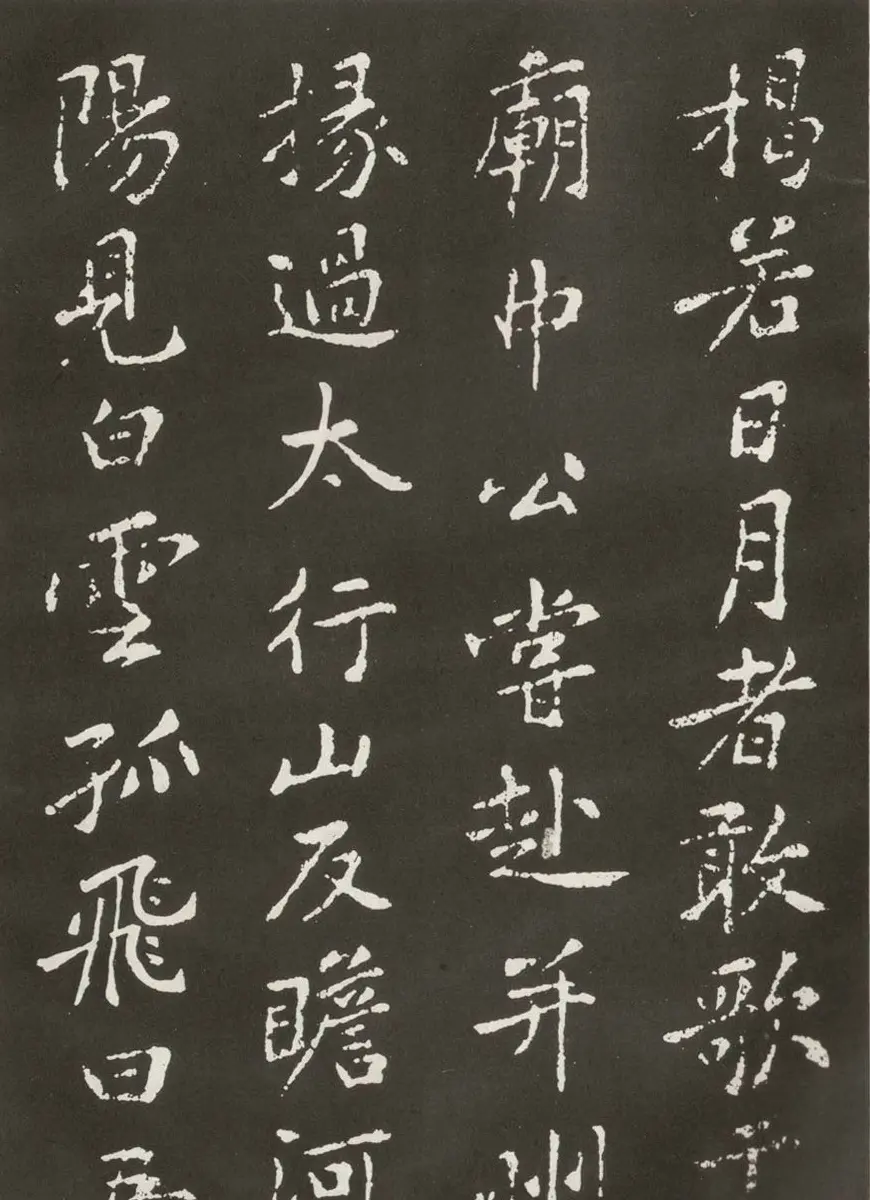 揭若日月者敢歌于
廟中公嘗赴并州
掾過太行山反瞻河
陽見白雲孤飛曰吾